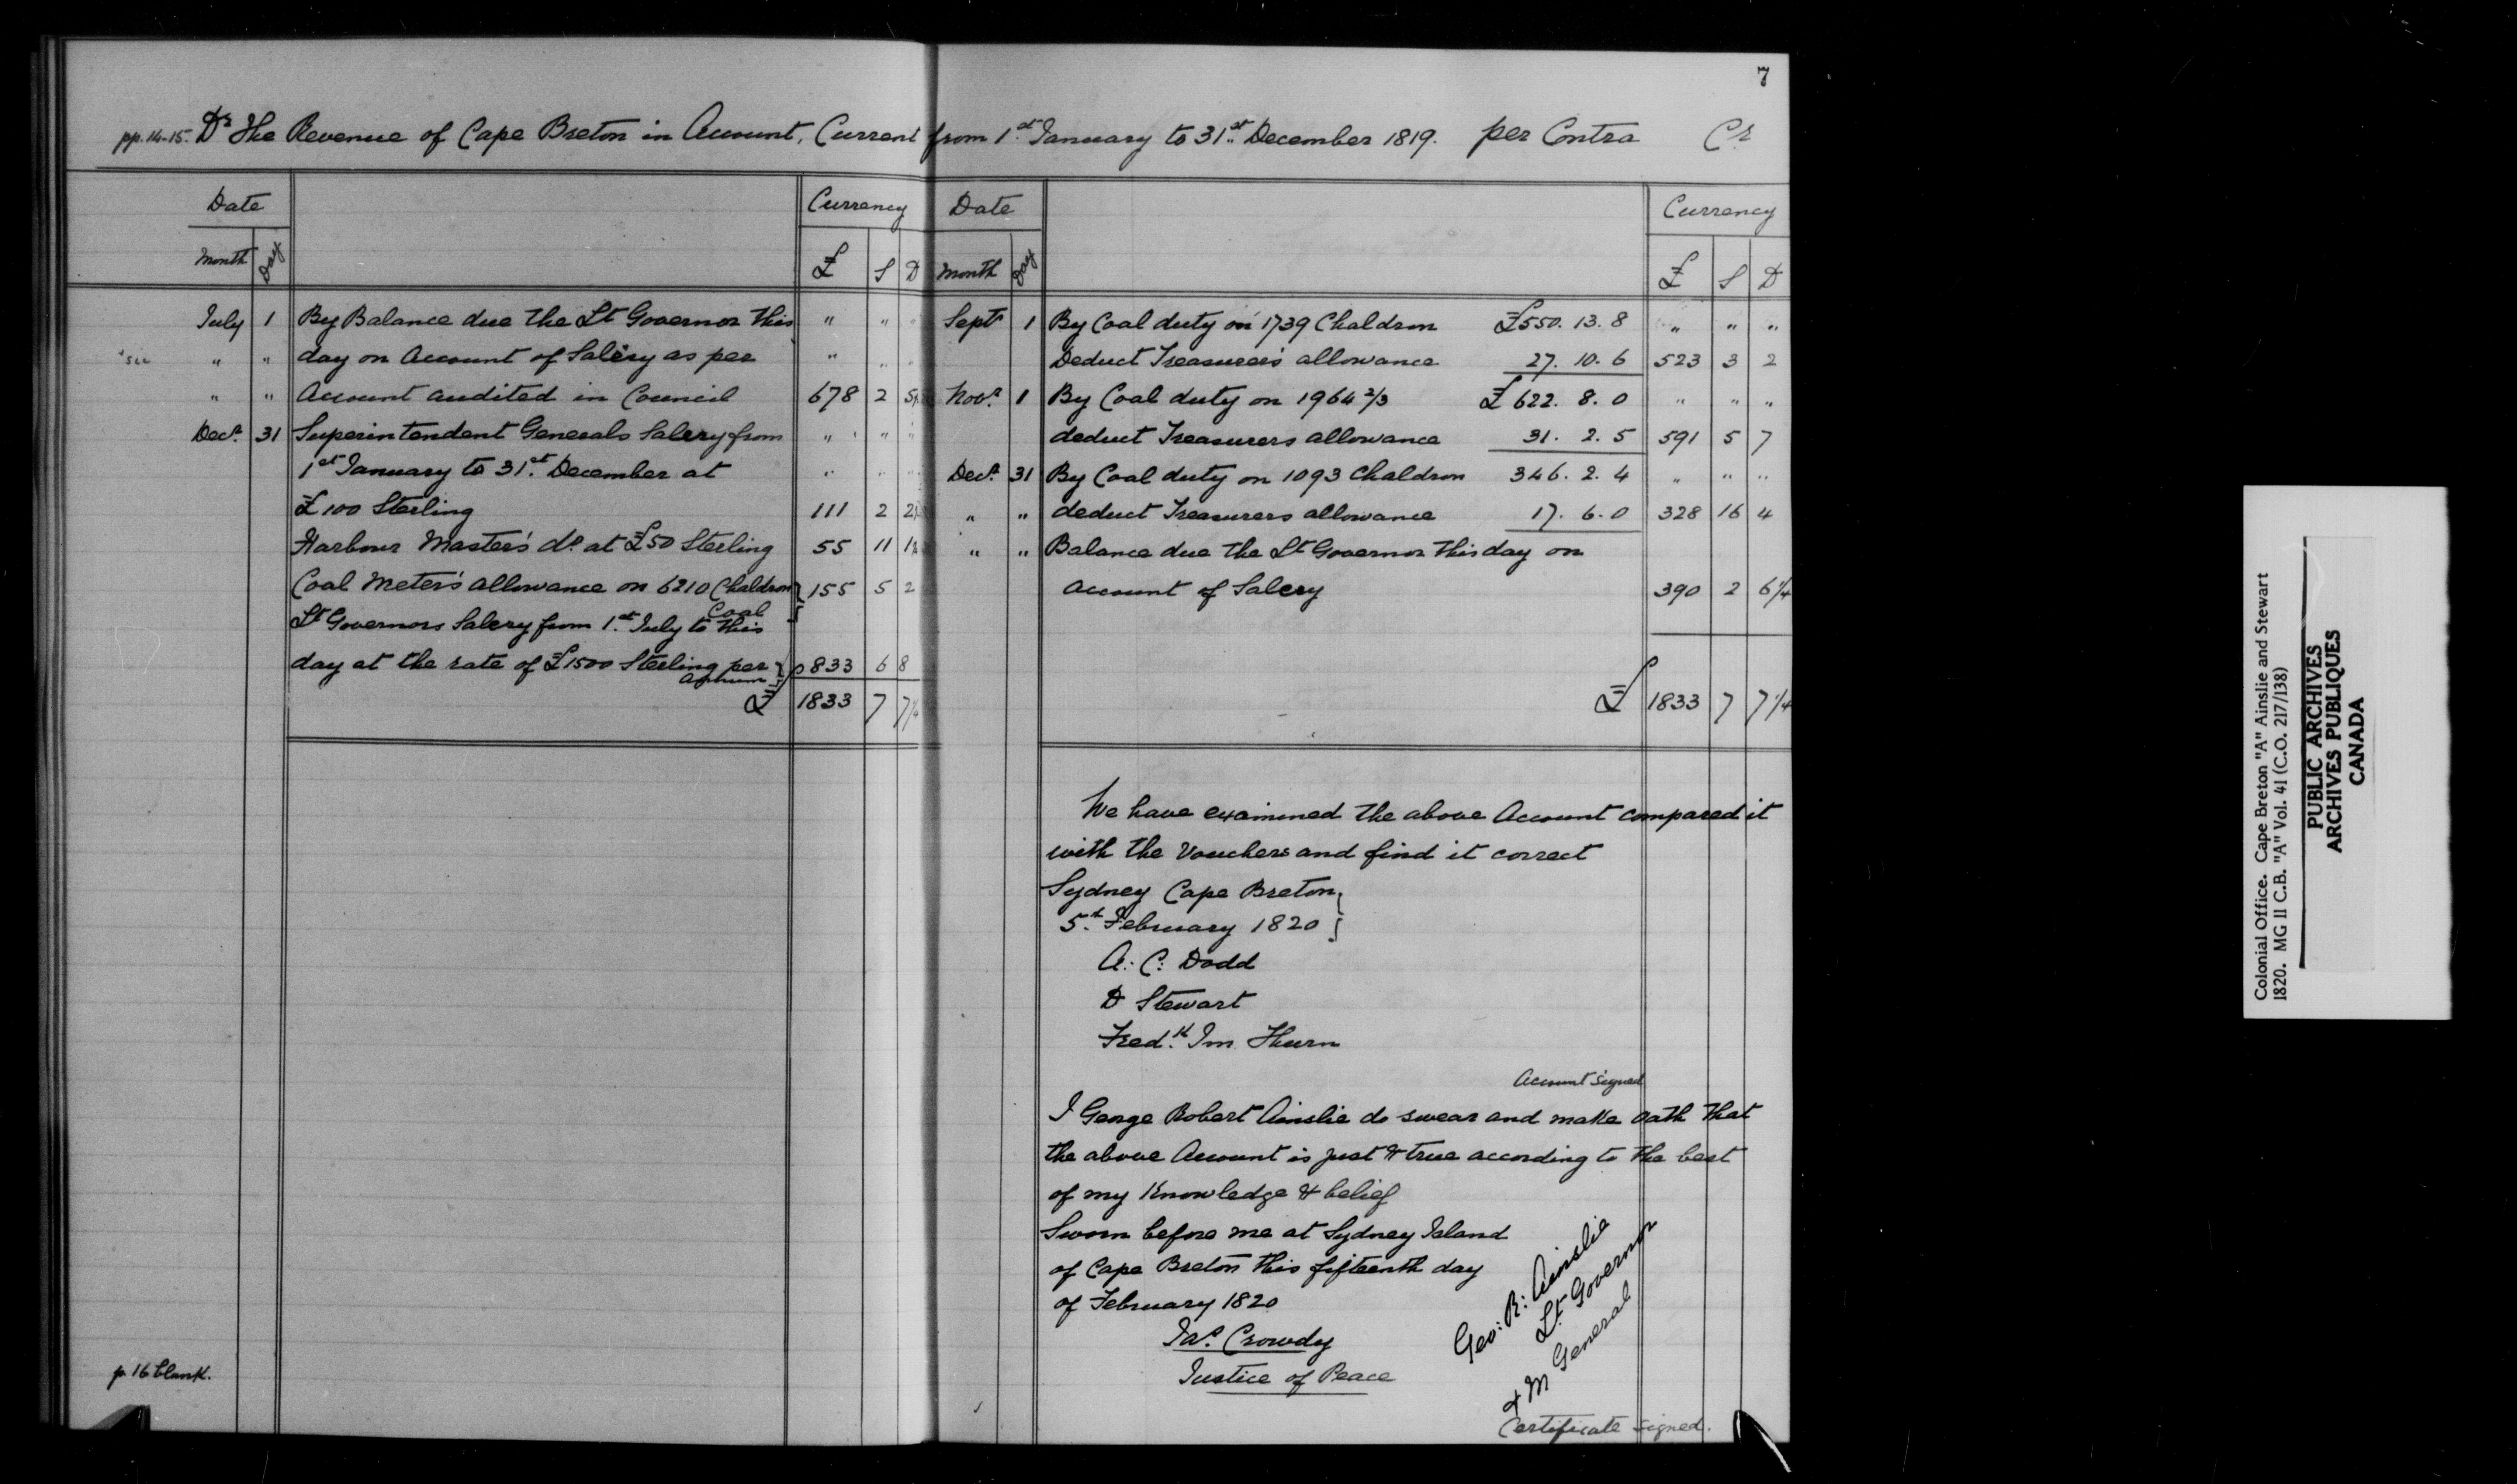 7
pp. 14-15. Dr The Revenue of Cape Breton in Account, Current from 1st January to 31st December 1819. per Contra Cr
Date Currency
Month Day £ S D
July 1 By Balance due the Lt Governor this " "
" " day on Account of Salery as per " "
" " Account audited in Council 678 2 5
Decr 31 Superintendent Generals Salery from " "
1st January to 31st December at
£100 Sterling 111 2 2
Harbour Master's do at £50 Sterling 55 11 1
Coal Meter's allowance on 6210 Chaldron Coal 155 5 2
Lt Governors Salery from 1st July to this
day at the rate of £1500 Sterling per Annum 833 6 8
£ 1833 7 7 1/4
p. 16 blank.
Date Currency
Month Day £ S D
Septr 1 By Coal duty on 1739 Chaldron £550. 13. 8 " " "
Deduct Treasurer's allowance 27. 10. 6 523 3 2
Novr 1 By Coal duty on 1964 2/3 £622. 8. 0 " " "
deduct Treasurers allowance 31. 2. 5 591 5 7
Decr 31 By Coal duty on 1093 Chaldron 346. 2. 4 " " "
" " deduct Treasurers allowance 17. 6. 0 328 16 4
" " Balance due the Lt Governor this day on
Account of Salery 390 2 6 1/4
£ 1833 7 7 1/4
We have examined the above Account compared it
with the Vouchers and find it correct
Sydney Cape Breton
5th February 1820
A: C: Dodd
D Stewart
Fredk Im Thurn
Account signed
I George Robert Ainslie do swear and make oath that
the above Account is just & true according to the best
of my Knowledge & belief
Sworn before me at Sydney Island
of Cape Breton this fifteenth day
of February 1820
Jas. Crowdy
Justice of Peace
Geo: R: Ainslie
Lt Governor
& M General
Certificate signed.
Colonial Office. Cape Breton "A" Ainslie and Stewart
1820. MG 11 C.B. "A" Vol. 41 (C.O. 217/138)
PUBLIC ARCHIVES
ARCHIVES PUBLIQUES
CANADA